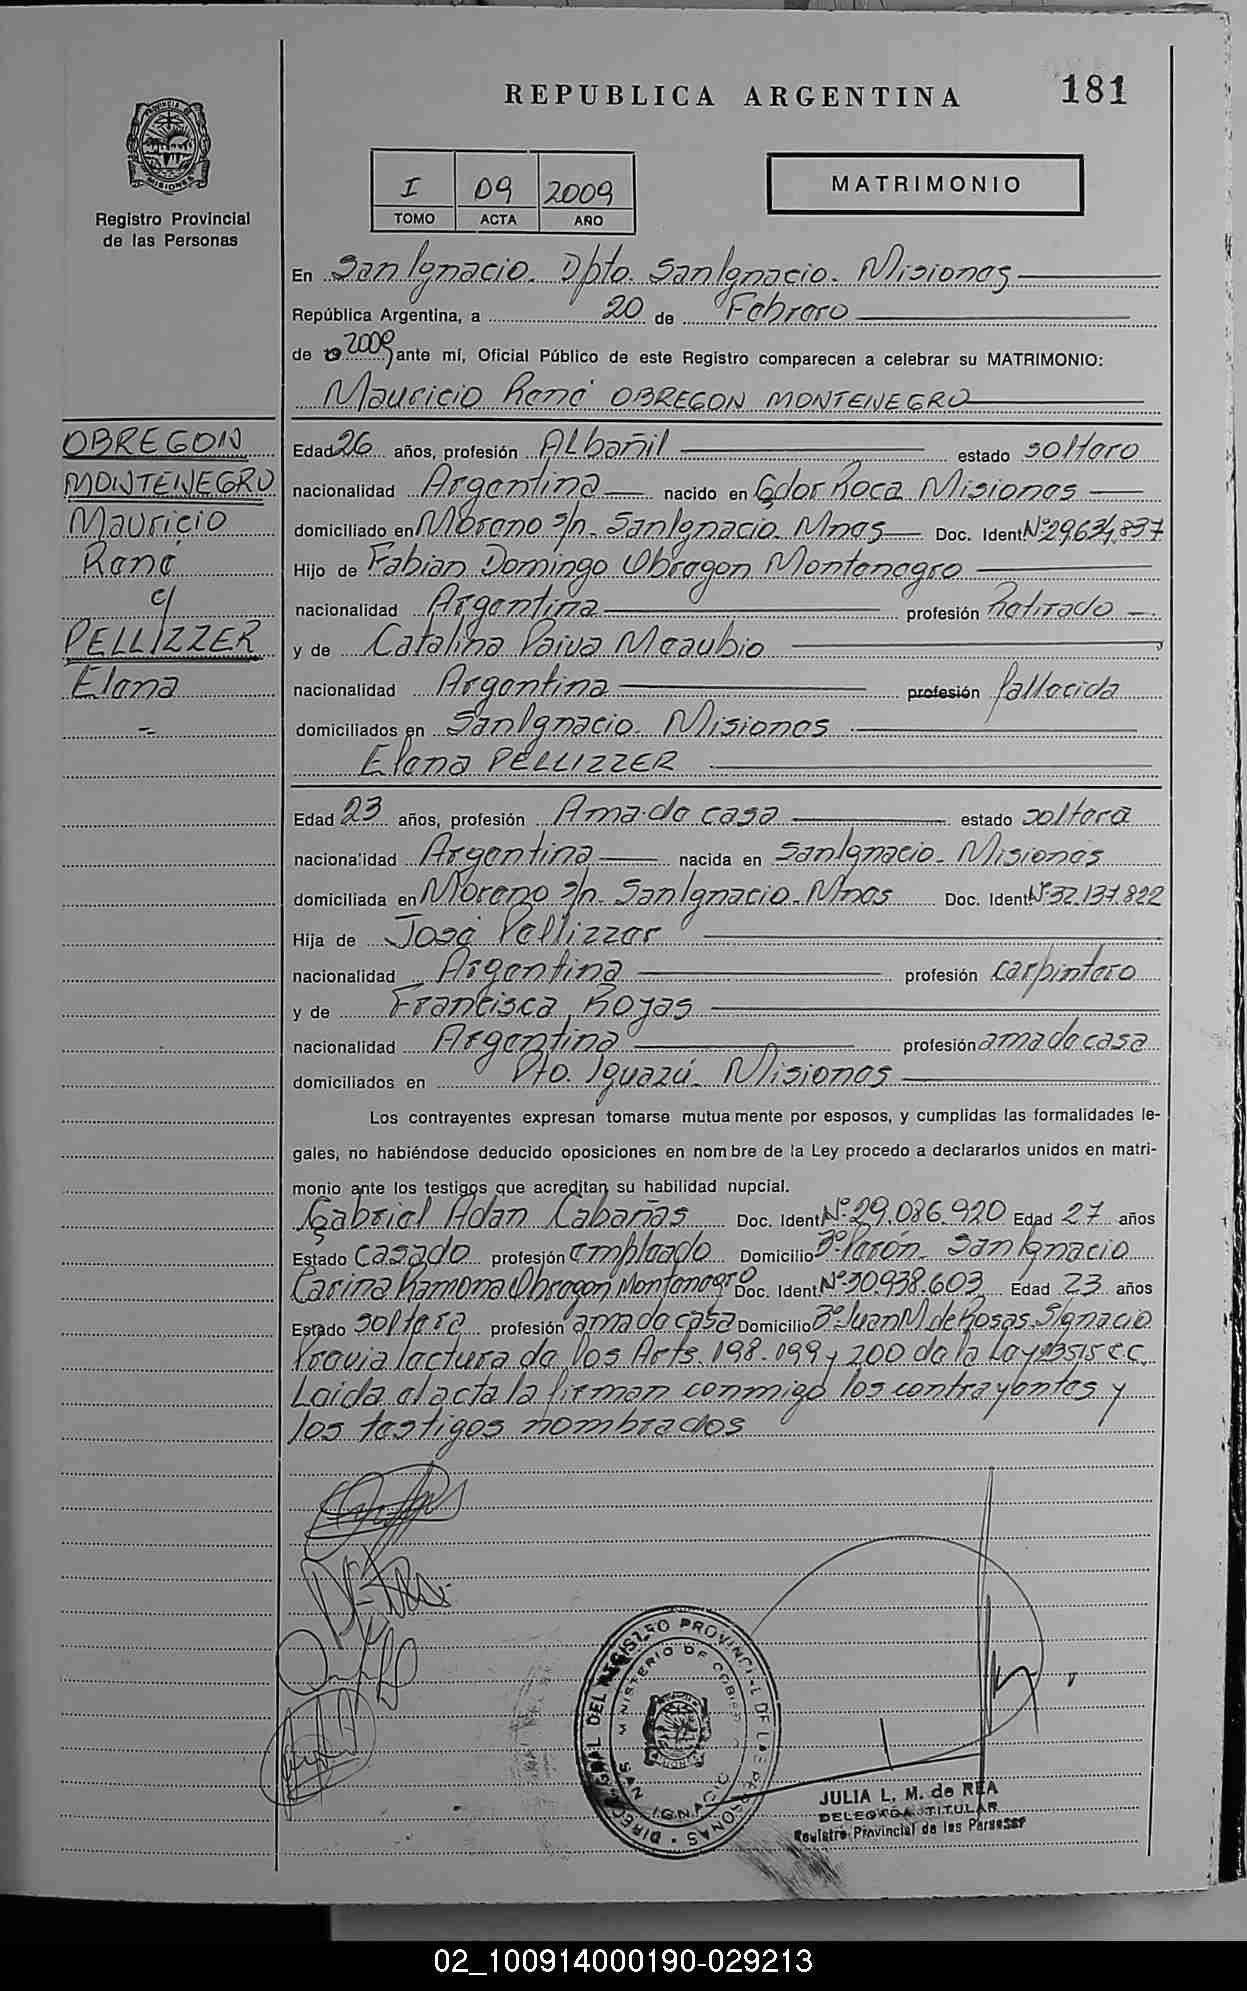 REPUBLICA ARGENTINA 181
PROVINCIA DE MISIONES
Registro Provincial
de las Personas
I 09 2009
TOMO ACTA AÑO
MATRIMONIO
En San Ignacio. Dpto. San Ignacio. Misiones
República Argentina, a 20 de Febrero
de 2009 ante mí, Oficial Público de este Registro comparecen a celebrar su MATRIMONIO:
Mauricio René OBREGON MONTENEGRO
OBREGON
MONTENEGRO
Mauricio
René
c/
PELLIZZER
Elena
Edad 26 años, profesión Albañil estado soltero
nacionalidad Argentina nacido en Gdor Roca Misiones
domiciliado en Moreno s/n. San Ignacio. Mnes Doc. Ident. Nº 29.634.837
Hijo de Fabian Domingo Obregon Montenegro
nacionalidad Argentina profesión Retirado
y de Catalina Paiva Meaubio
nacionalidad Argentina profesión fallecida
domiciliados en San Ignacio. Misiones
Elena PELLIZZER
Edad 23 años, profesión Ama de casa estado soltera
nacionalidad Argentina nacida en San Ignacio. Misiones
domiciliada en Moreno s/n. San Ignacio. Mnes Doc. Ident. Nº 32.137.822
Hija de José Pellizzer
nacionalidad Argentina profesión carpintero
y de Francisca Rojas
nacionalidad Argentina profesión ama de casa
domiciliados en Pto. Iguazú. Misiones
Los contrayentes expresan tomarse mutuamente por esposos, y cumplidas las formalidades le-
gales, no habiéndose deducido oposiciones en nombre de la Ley procedo a declararlos unidos en matri-
monio ante los testigos que acreditan su habilidad nupcial.
Gabriel Adan Cabañas Doc. Ident. Nº 29.086.920 Edad 27 años
Estado casado profesión empleado Domicilio Bº Perón. San Ignacio
Carina Ramona Obregon Montenegro Doc. Ident. Nº 30.938.603 Edad 23 años
Estado soltera profesión ama de casa Domicilio Bº Juan M de Rosas. S Ignacio
Previa lectura de los Arts. 198. 199 y 200 de la Ley 23515 C.C.
Leida el acta la firman conmigo los contrayentes y
los testigos nombrados
DIREC. GRAL. DEL REGISTRO PROVINCIAL DE LAS PERSONAS
MINISTERIO DE GOBIERNO
SAN IGNACIO
JULIA L. M. de REA
DELEGADA TITULAR
Registro Provincial de las Personas
02_100914000190-029213